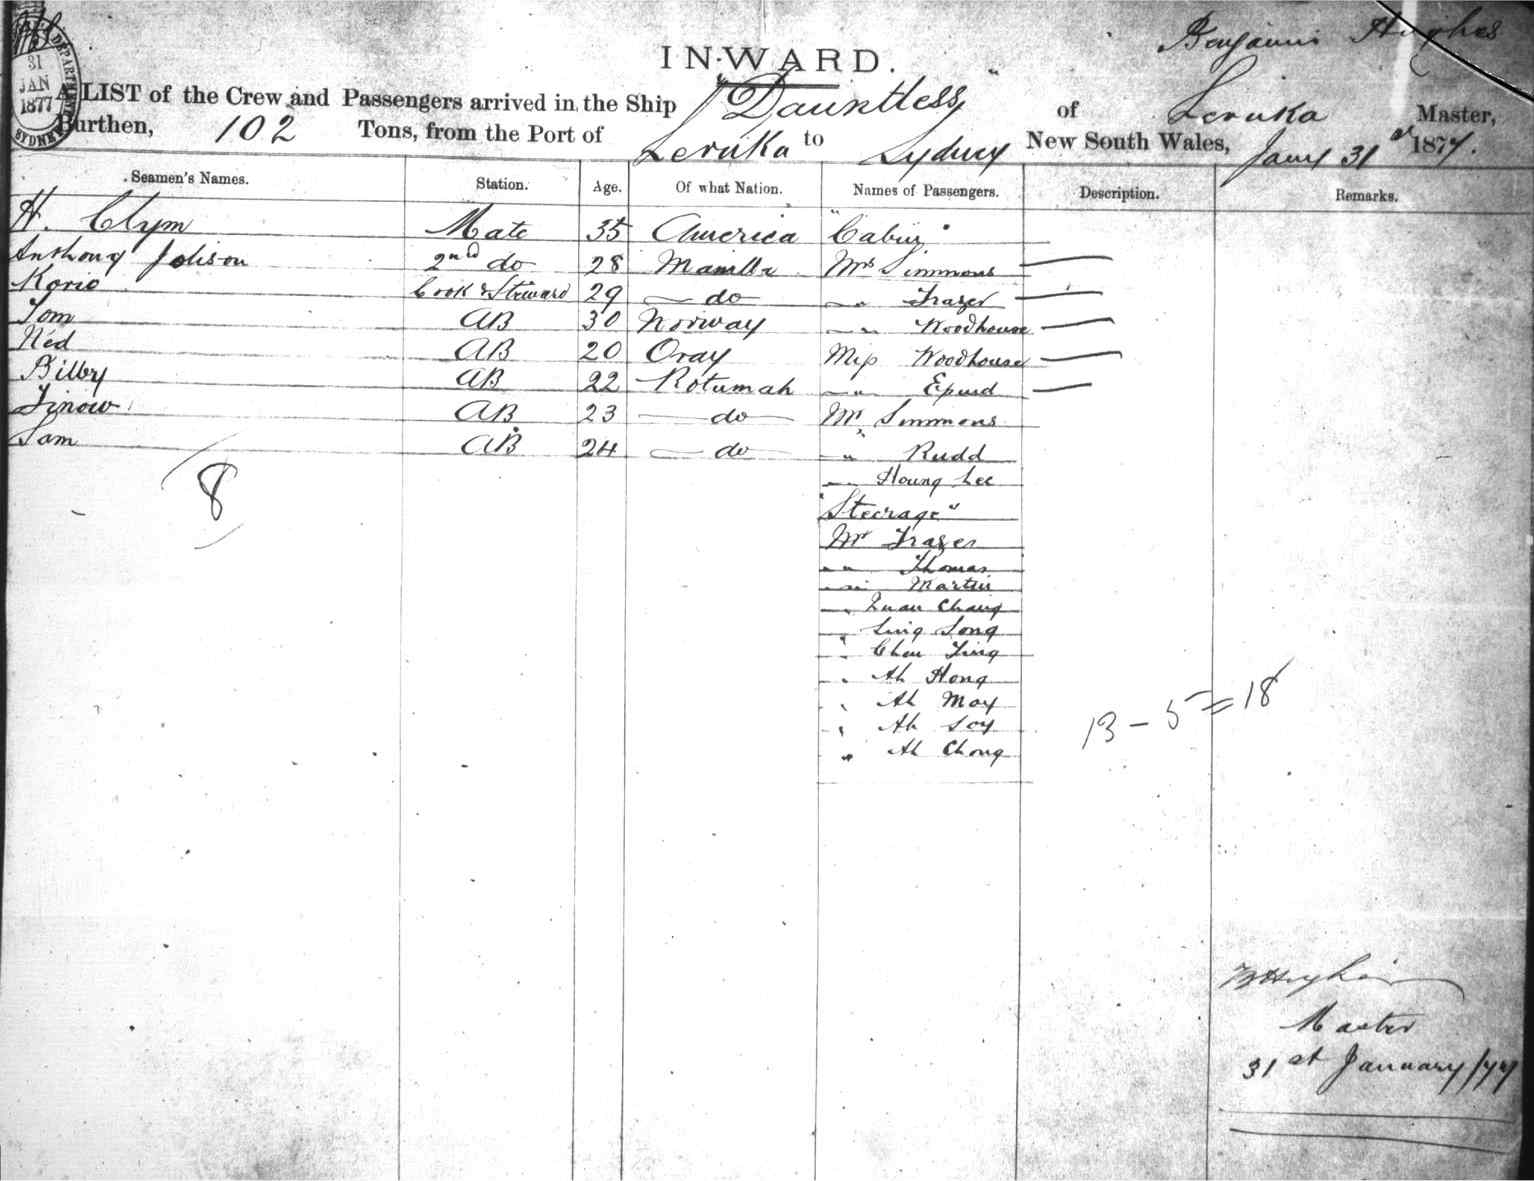 Benjamin Hughes
INWARD.
31
JAN
1877
SYDNEY
A LIST of the Crew and Passengers arrived in the Ship "Dauntless" of Levuka Master,
Burthen, 102 Tons, from the Port of Levuka to Sydney New South Wales, Jany 31st 1877.
Seamen's Names. Station. Age. Of what Nation. Names of Passengers. Description. Remarks.
H. Clym Mate 35 America "Cabin"
Anthony Jolison 2nd do 28 Manilla Mrs Simmons
Korio Cook & Steward 29 — do — " Frazer
Tom AB 30 Norway " Woodhouse
Ned AB 20 Oray Miss Woodhouse
Bilby AB 22 Rotumah " Epurd
Tinow AB 23 — do — Mr Simmons
Sam AB 24 — do — " Rudd
8
" Houng Lee
"Steerage"
Mr Frazer
" Thomas
" Martin
" Quan Chang
" Ling Song
" Chou Ting
" Ah Hong
" Ah Moy
" Ah Soy
" Ah Chong
13 - 5 = 18
BHughes
Master
31st January/77